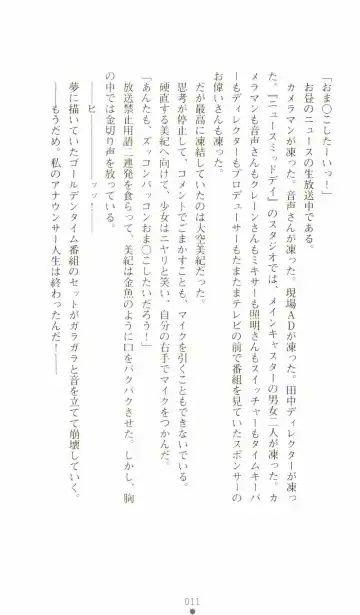 「おま〇こしたーいっ！」
お昼のニュースの生放送中である。
カメラマンが凍った。音声さんが凍った。現場ＡＤが凍った。田中ディレクターが凍っ
た。『ニュースミッドデイ』のスタジオでは、メインキャスターの男女二人が凍った。カ
メラマンも音声さんもクレーンさんもミキサーも照明さんもスイッチャーもタイムキーパ
ーもディレクターもプロデューサーもたまたまテレビの前で番組を見ていたスポンサーの
お偉いさんも凍った。
だが最高に凍結していたのは大空美紀だった。
思考が停止して、コメントでごまかすことも、マイクを引くこともできないでいる。
硬直する美紀へ向けて、少女はニヤリと笑い、自分の右手でマイクをつかんだ。
「あんたも、ズッコンバッコンおま〇こしたいだろう！」
放送禁止用語二連発を食らって、美紀は金魚のように口をパクパクさせた。しかし、胸
の中では金切り声を放っている。
――ヒ――――ッッ！――
夢に描いていたゴールデンタイム番組のセットがガラガラと音を立てて崩壊していく。
――もうだめ。私のアナウンサー人生は終わったんだ――――
011